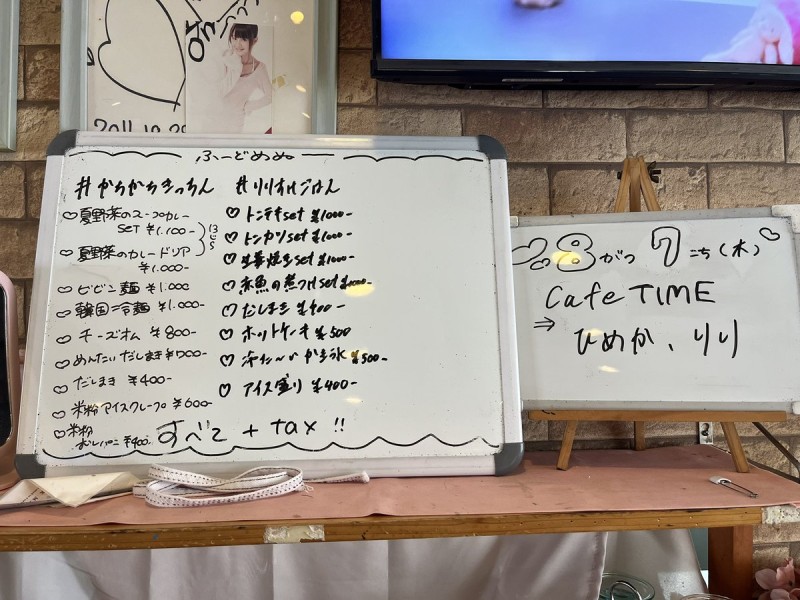 2011.10.29
ふーどめぬ
#かちかちきっちん
♡夏野菜のスープカレー
SET ¥1.100-
♡夏野菜のカレードリア
¥1.000-
♡ビビン麺 ¥1.000
♡韓国冷麺 ¥1.000-
♡チーズオム ¥800-
♡めんたいだしまき ¥700-
♡だしまき ¥400-
♡米粉アイスクレープ ¥600-
♡米粉
¥400.
#リリオけごはん
♡トンテキset ¥1000-
♡トンカツset ¥1000-
♡生姜焼きset ¥1000-
♡赤魚の煮つけset ¥1000-
♡だしまき ¥400-
♡ホットケーキ ¥500
♡かき氷 ¥500-
♡アイス盛り ¥400-
すべて + tax !!
8がつ 7にち(水)♡
Cafe TIME
⇒ ひめか、りり